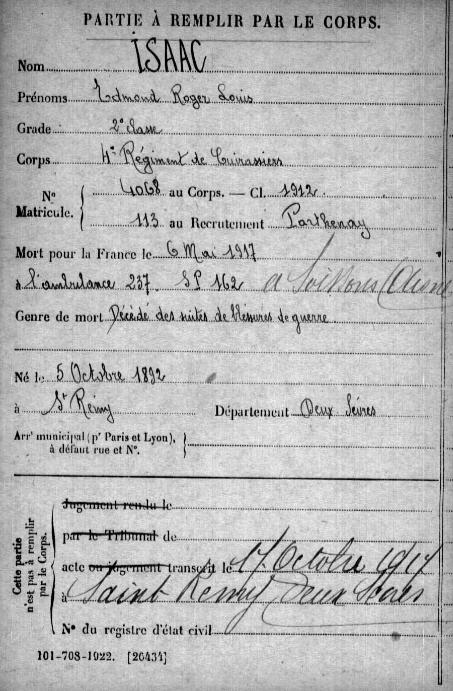 PARTIE À REMPLIR PAR LE CORPS.
Nom ISAAC
Prénoms Edmond Roger Louis
Grade 2e classe
Corps 4e Régiment de Cuirassiers
No Matricule. { 4068 au Corps. — Cl. 1912.
113 au Recrutement Parthenay
Mort pour la France le 6 Mai 1917
à l'ambulance 237. SP 162 à Soissons (Aisne
Genre de mort Décédé des suites de blessures de guerre
Né le 5 Octobre 1892
à St Rémy Département Deux Sèvres
Arrt municipal (pr Paris et Lyon), à défaut rue et No. }
Cette partie n'est pas à remplir par le Corps.
Jugement rendu le
par le Tribunal de
acte ou jugement transcrit le 17 Octobre 1917
à Saint Remy Deux Sèvres
No du registre d'état civil
101-708-1922. [26434]